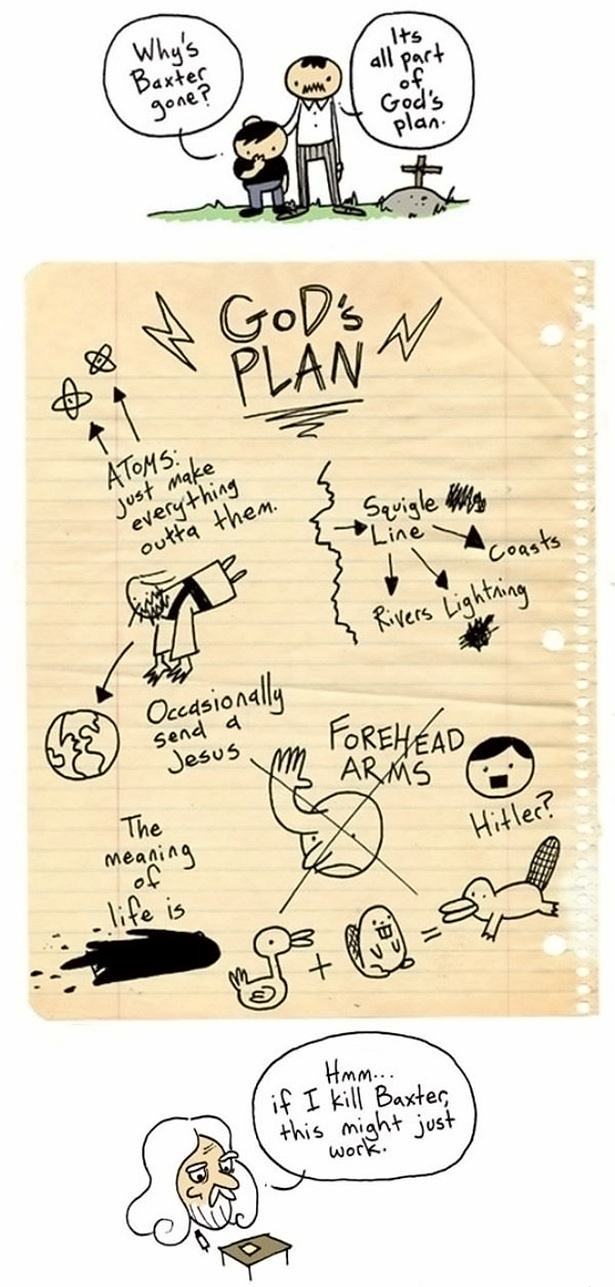 Why's
Baxter
gone?
Its
all part
of
God's
plan.
GOD's
PLAN
ATOMS:
just make
everything
outta them.
Squigle
Line
Coasts
Rivers
Lightning
Occasionally
send a
Jesus
FOREHEAD
ARMS
Hitler?
The
meaning
of
life is
+
=
Hmm...
if I kill Baxter,
this might just
work.